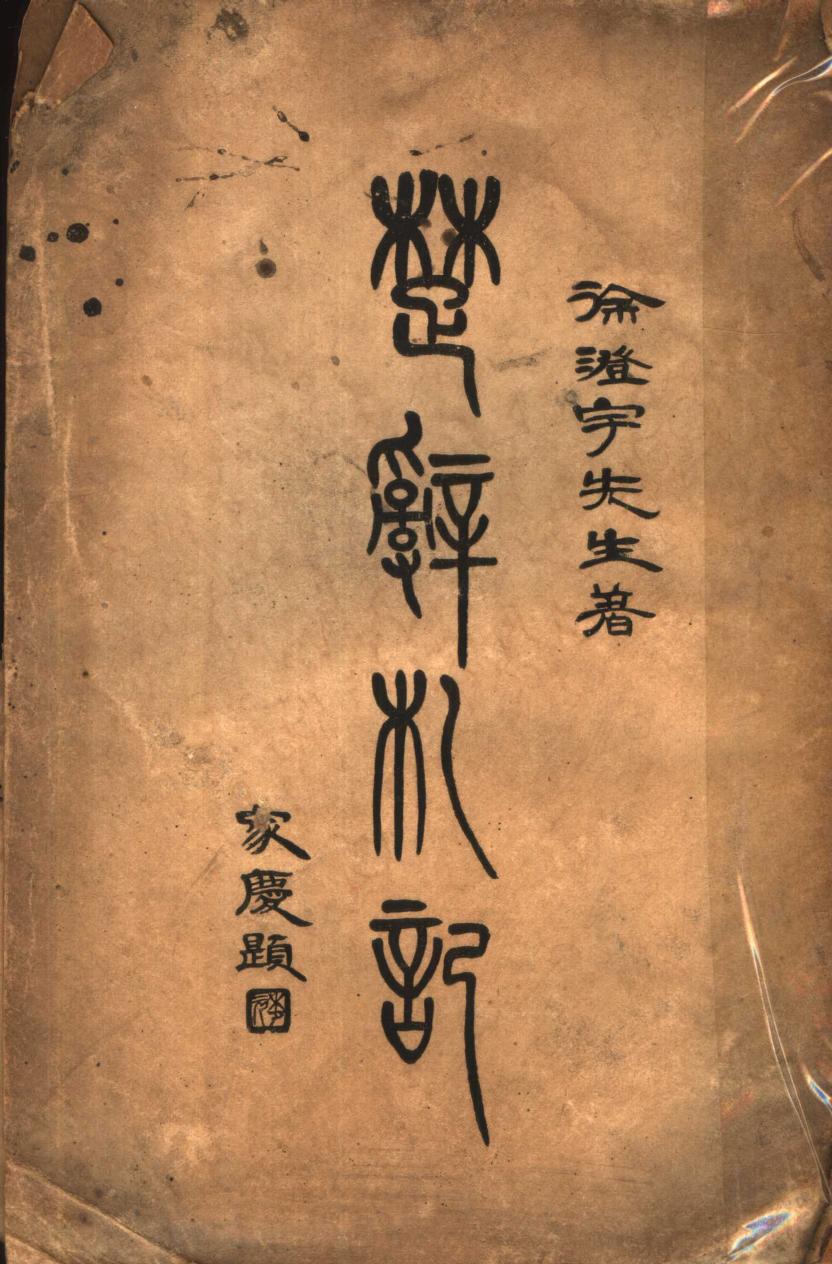 徐澄宇先生著
楚辭札記
家慶題